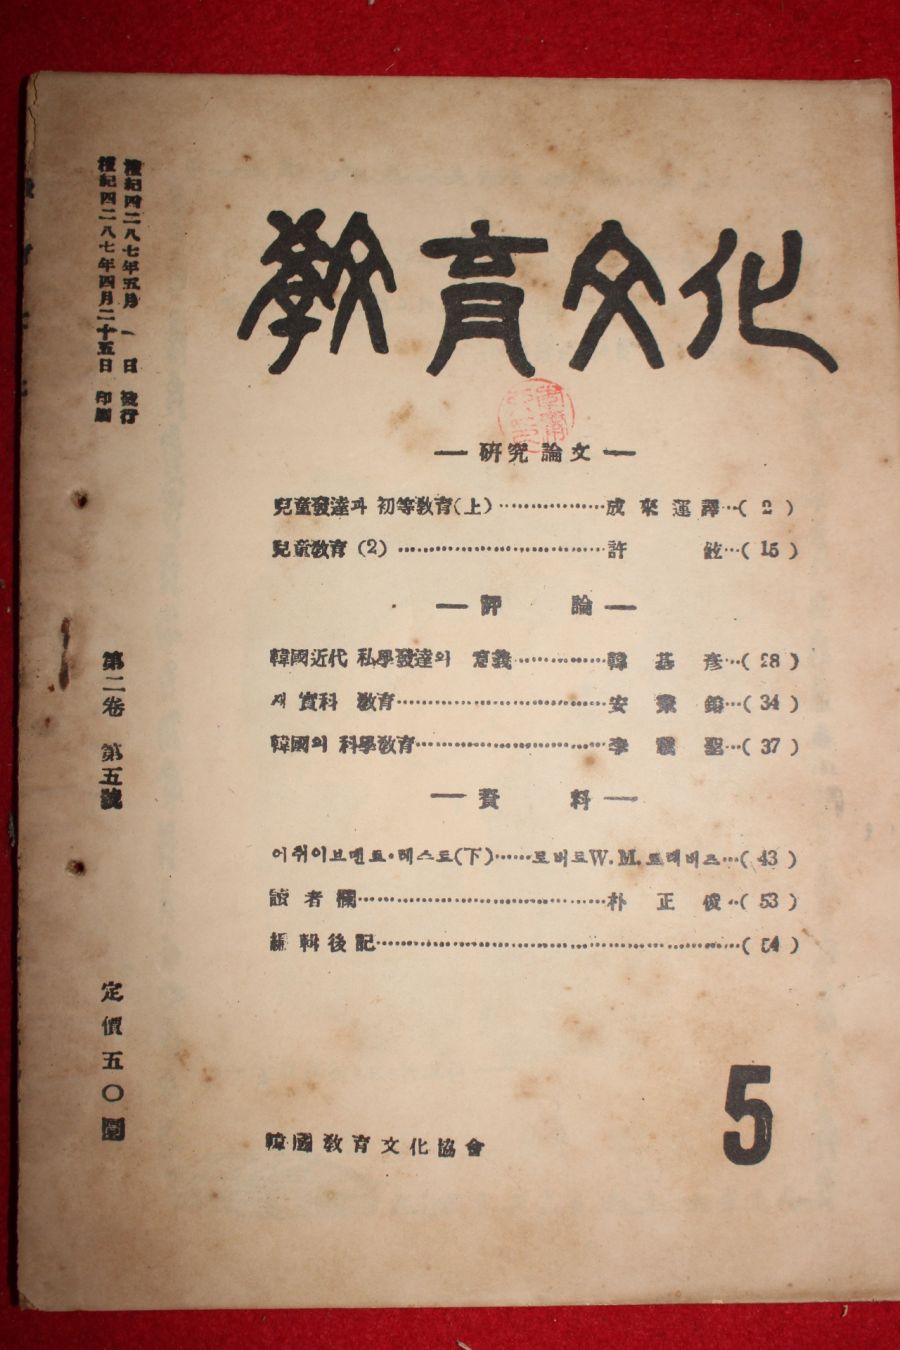 檀紀四二八七年五月一日 發行
檀紀四二八七年四月二十五日 印刷
敎育文化
硏究論文
兒童發達과 初等敎育(上)……成來運譯…( 2 )
兒童敎育(2)……許鉉…( 15 )
評論
韓國近代 私學發達의 意義……韓基彥…( 28 )
實科 敎育……安…( 34 )
韓國의 科學敎育……李聖…( 37 )
資料
어취이브멘트·테스트(下)……로버트W.M.트래버즈…( 43 )
讀者欄……朴正俊…( 53 )
編輯後記……( 54 )
第二卷 第五號
定價五〇圜
5
韓國敎育文化協會